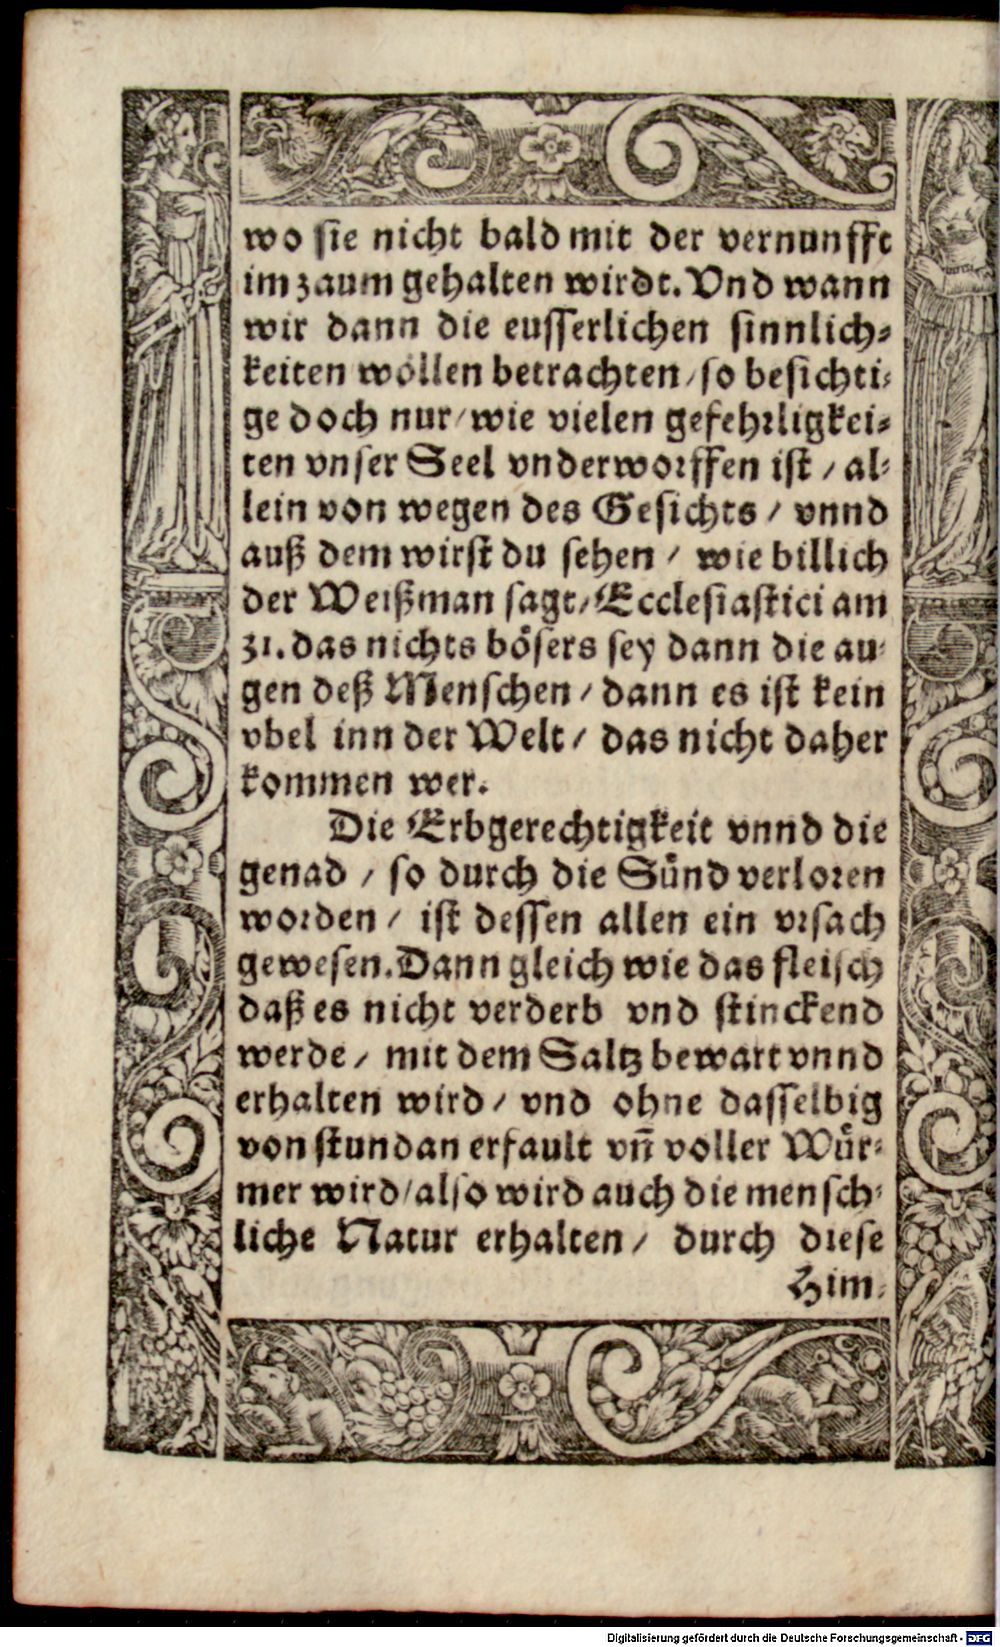 wo sie nicht bald mit der vernunfft
im zaum gehalten wirdt. Vnd wann
wir dann die eusserlichen sinnlich-
keiten wöllen betrachten / so besichti-
ge doch nur / wie vielen gefehrligkei-
ten vnser Seel vnderworffen ist / al-
lein von wegen des Gesichts / vnnd
auß dem wirst du sehen / wie billich
der Weißman sagt / Ecclesiastici am
31. das nichts bösers sey dann die au-
gen deß Menschen / dann es ist kein
vbel inn der Welt / das nicht daher
kommen wer.
Die Erbgerechtigkeit vnnd die
genad / so durch die Sünd verloren
worden / ist dessen allen ein vrsach
gewesen. Dann gleich wie das fleisch
daß es nicht verderb vnd stinckend
werde / mit dem Saltz bewart vnnd
erhalten wird / vnd ohne dasselbig
von stundan erfault vñ voller Wür-
mer wird / also wird auch die mensch-
liche Natur erhalten / durch diese
Him-
Digitalisierung gefördert durch die Deutsche Forschungsgemeinschaft - DFG